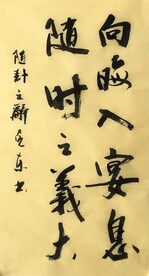 向晦入宴息
随时之義大
随卦之辭